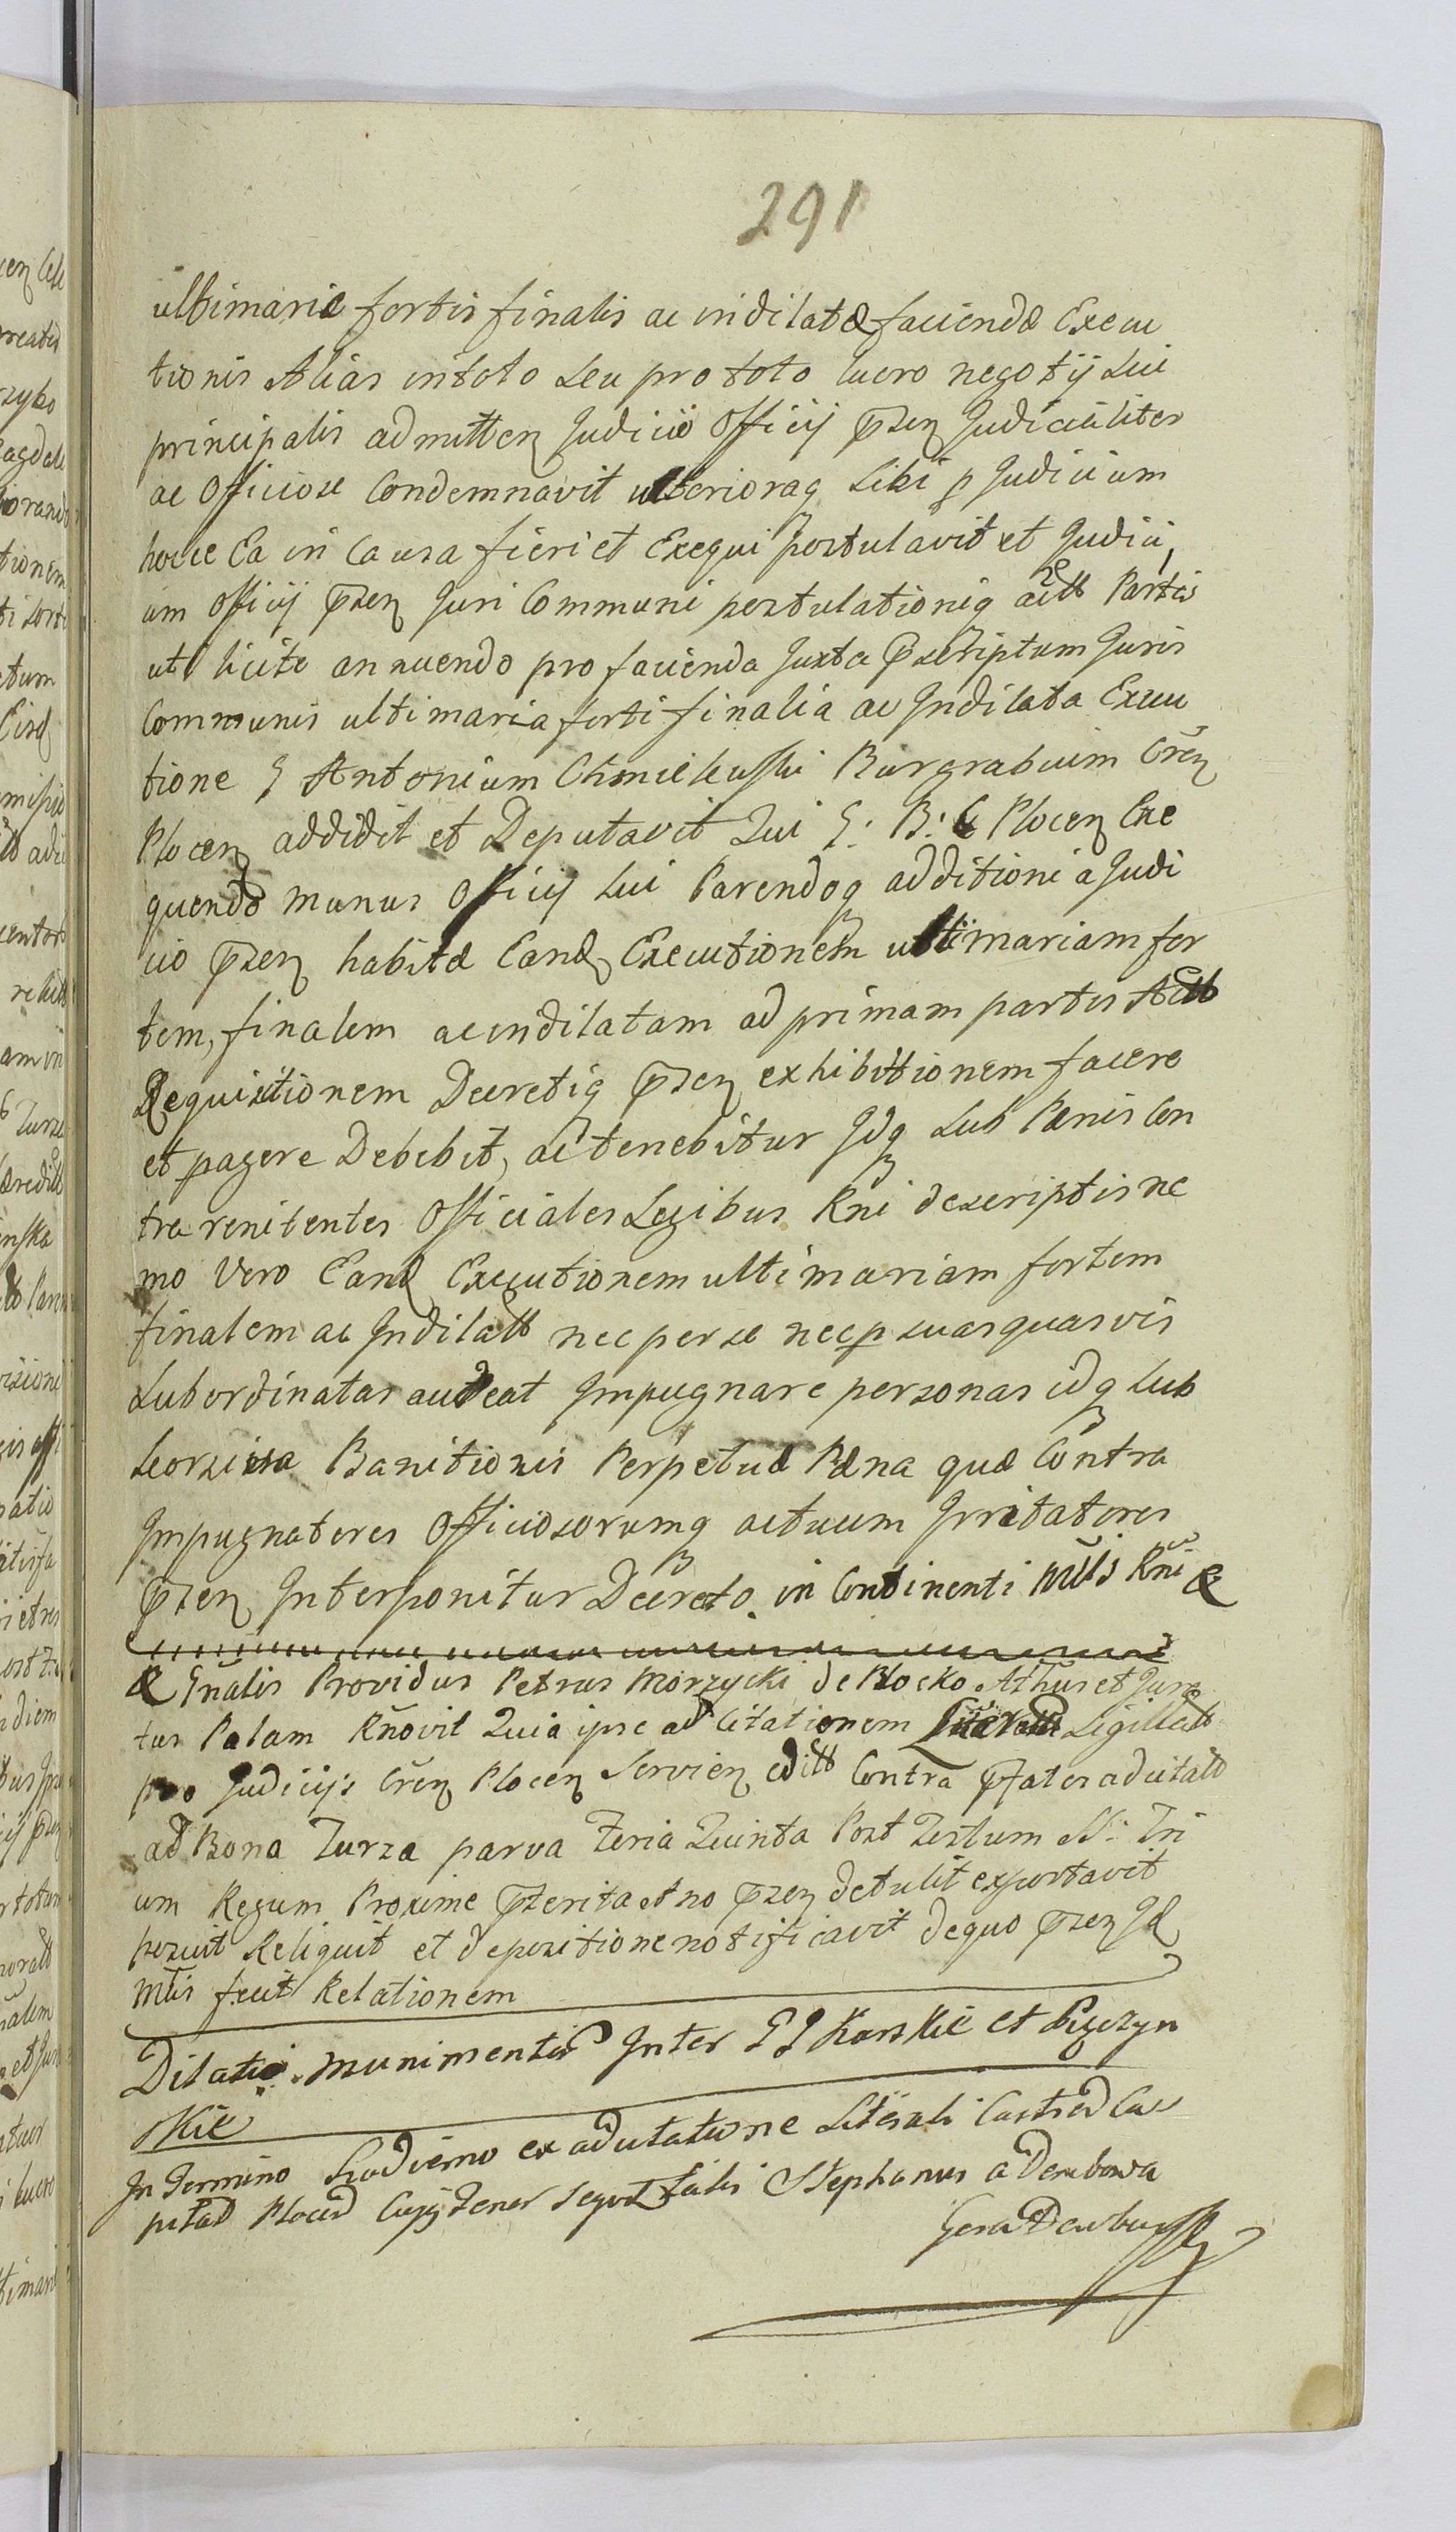 291
ultimariæ fortis finalis ac indilatæ faciendæ Execu
tionis Alias intoto seu pro toto lucro negotij sui
principalis admitten Judicio Officij pnsen Judicialiter
ac Officiose Condemnavit ulterioraq sibi p Judicium
hocce Ea in Causa fieri et Exequi postulavit et Judici
um Officij pnsen Juri Communi postulationiq Partis
uti licite annuendo pro facienda Juxta Præscriptum Juris
Communis ultimaria forti finalia ac Indilata Execu
tione G Antonium Chmielewski Burgrabium Cren
Plocen addidit et Deputavit Qui G: B: C Plocen Exe
quendo munus Officij sui Parendoq additioni a Judi
cio pnsen habitæ Eand Executionem ultimariam for
tem, finalem ac indilatam ad primam partis
Requisitionem Decretiq pnsen exhibitionem facere
et pagere Debebit, ac tenebitur Idq sub Pænis Con
tra renitentes Officiales Legibus Rni descriptis ne
mo Vero Eand Executionem ultimariam fortem
finalem ac Indilatt nec per se nec p suas quasvis
subordinatas audeat Impugnare personas idq sub
seorsiva Banitionis Perpetuæ Pæna quæ Contra
Impugnatores Officiosorumq actuum Irritatores
pnsen Interponitur Decreto. in Continenti Mtis Rni &
& Gnalis Providus Petrus Morzycki de Plocko Athus et Jura
tus Palam Rnovit Quia ipse ad Citationem Sigillatt
pro Judicijs Cren Plocen Servien editt Contra pfatos adcitatt
ad Bona Turza parva Feria Quinta Post Festum SS: Tri
um Regum Proxime pterita et no pnsen detulit exportavit
posuit Reliquit et depositione notificavit de quo pnsen Jd
Mtis fecit Relationem
Dilatio. munimentis Inter GG Karskie et
skie
In Termino Hodierno ex adcitatione Literali Castren Ca
pitan Plocen Cujus Tenor sequt talis Stephanus a Dembowa
Gora Dembowski